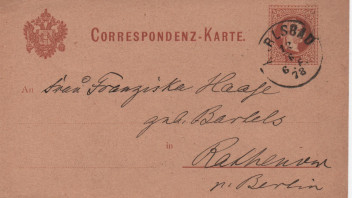 CORRESPONDENZ-KARTE.
KARLSBAD
12
6
78
An Frau Franziska Haase
geb. Bartels
in
Rathenow
p. Berlin